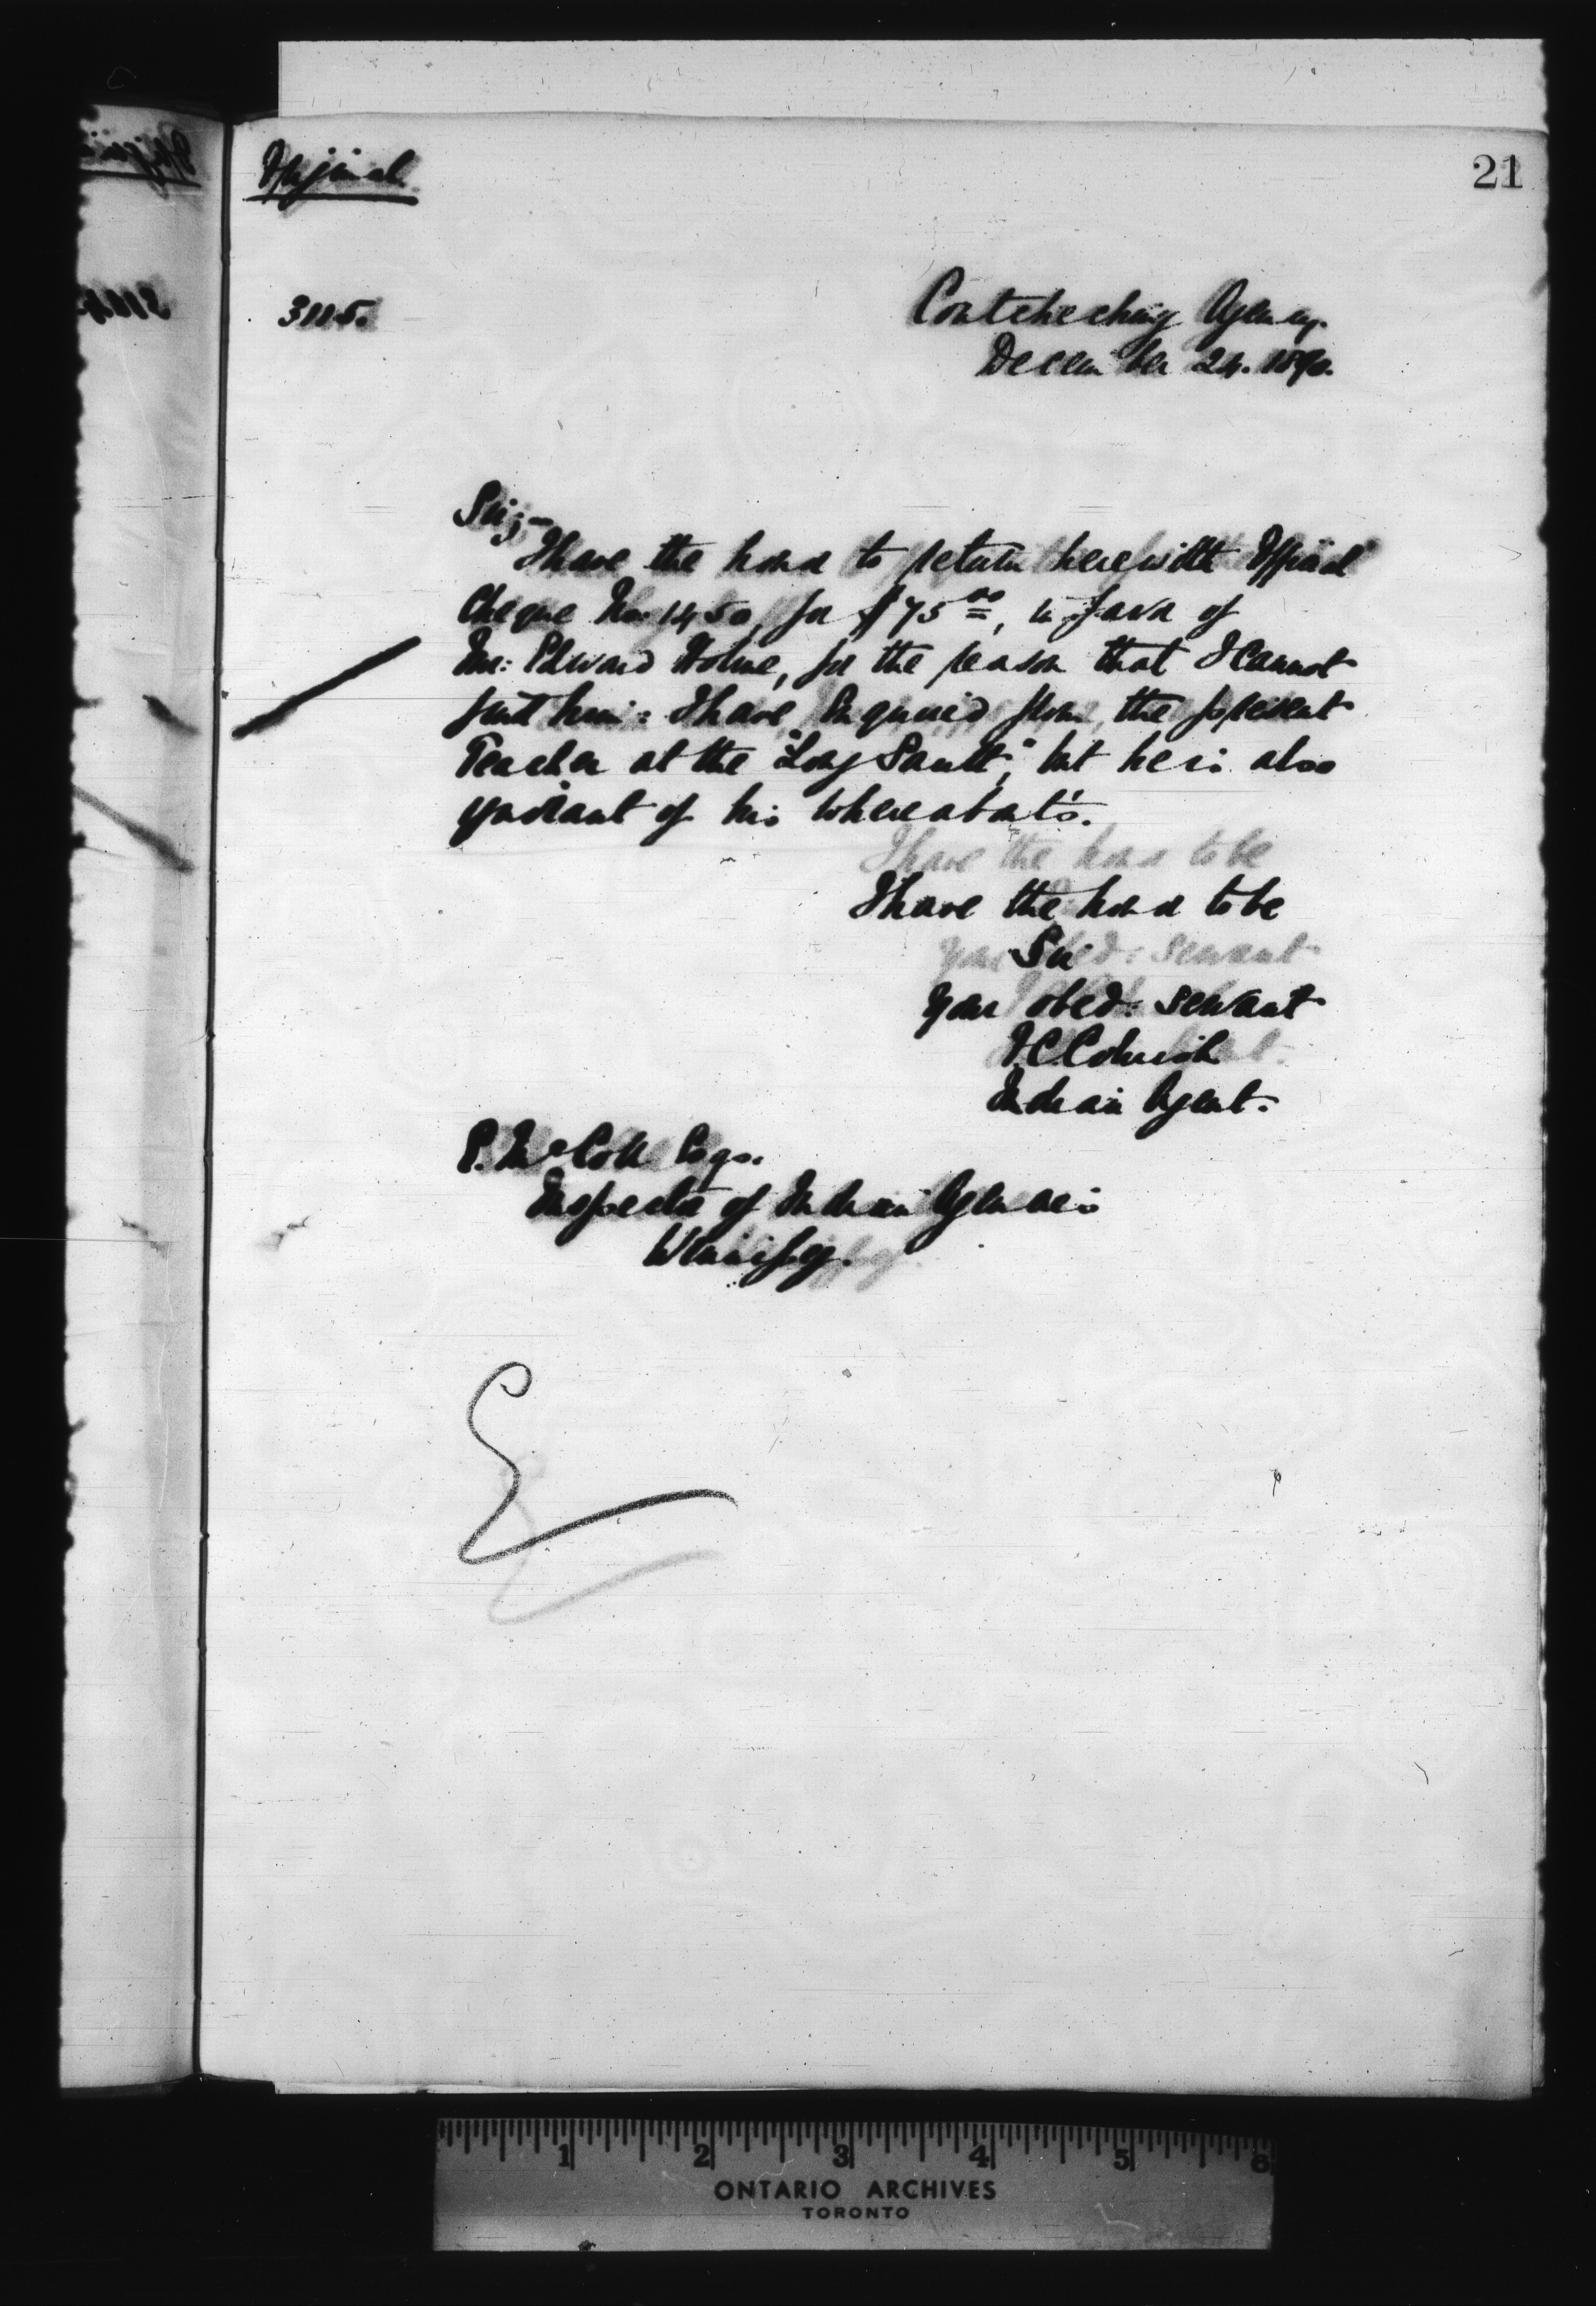 Original
21
3115.
Coutcheching Agency.
December 24. 1890.
Sir;-
I have the honor to return herewith Official
Cheque No. 1450, for $75 00, in favor of
Mr: Edward Holme, for the reason that I cannot
find him: I have enquired from the present
Teacher at the "Long Sault", but he is also
ignorant of his whereabouts.
I have the honor to be
Sir
Your obed: servant
F.C. Cornish
Indian Agent.
E. McColl Esqr.
Inspector of Indian Agencies
Winnipeg.
1 2 3 4 5 6
ONTARIO ARCHIVES
TORONTO